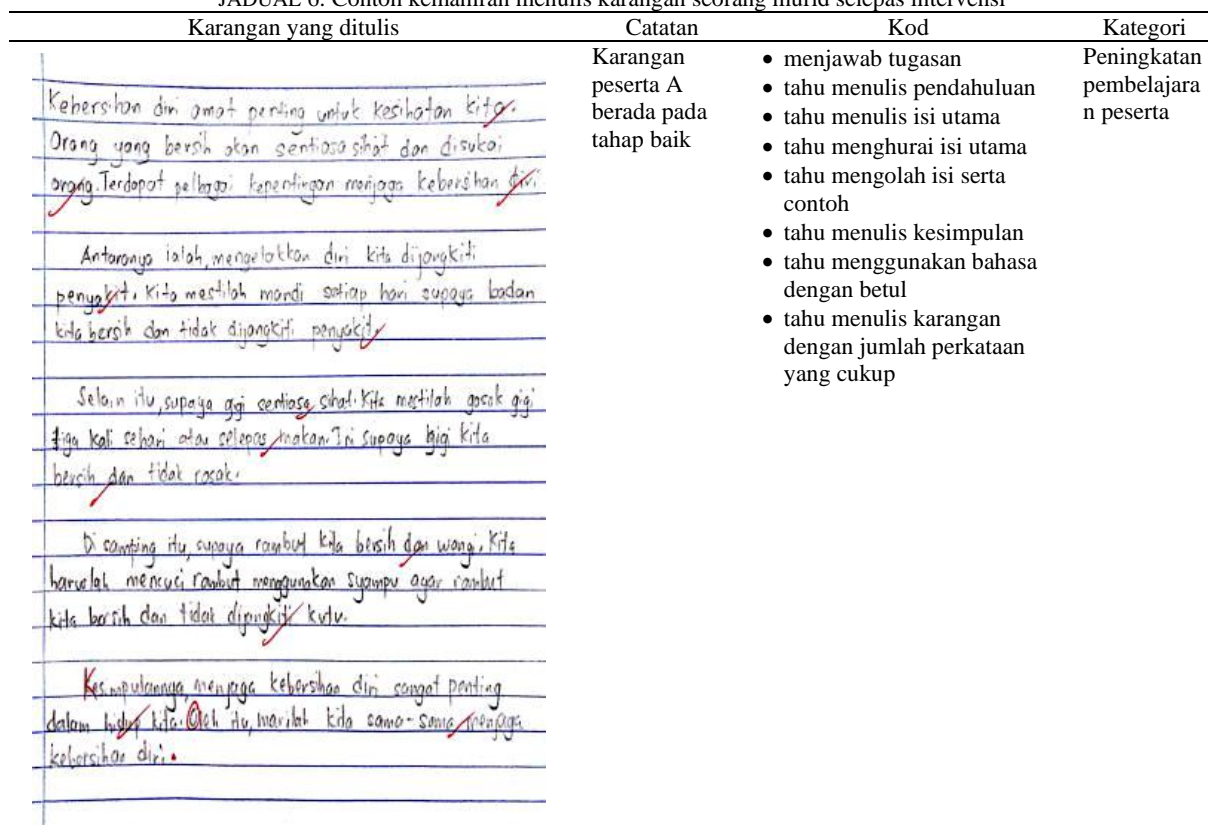 JADUAL 6. Contoh kemahiran menulis karangan seorang murid selepas intervensi
Karangan yang ditulis Catatan Kod Kategori
Kebersihan diri amat penting untuk kesihatan kita.
Orang yang bersih akan sentiasa sihat dan disukai
orang. Terdapat pelbagai kepentingan menjaga kebersihan diri
Antaranya ialah, mengelakkan diri kita dijangkiti
penyakit. Kita mestilah mandi setiap hari supaya badan
kita bersih dan tidak dijangkiti penyakit.
Selain itu, supaya gigi sentiasa sihat. Kita mestilah gosok gigi
tiga kali sehari atau selepas makan. Ini supaya gigi kita
bersih dan tidak rosak.
Di samping itu, supaya rambut kita bersih dan wangi. Kita
haruslah mencuci rambut menggunakan syampu agar rambut
kita bersih dan tidak dijangkiti kutu.
Kesimpulannya, menjaga kebersihan diri sangat penting
dalam hidup kita. Oleh itu, marilah kita sama-sama menjaga
kebersihan diri.
Karangan
peserta A
berada pada
tahap baik
• menjawab tugasan
• tahu menulis pendahuluan
• tahu menulis isi utama
• tahu menghurai isi utama
• tahu mengolah isi serta
contoh
• tahu menulis kesimpulan
• tahu menggunakan bahasa
dengan betul
• tahu menulis karangan
dengan jumlah perkataan
yang cukup
Peningkatan
pembelajara
n peserta